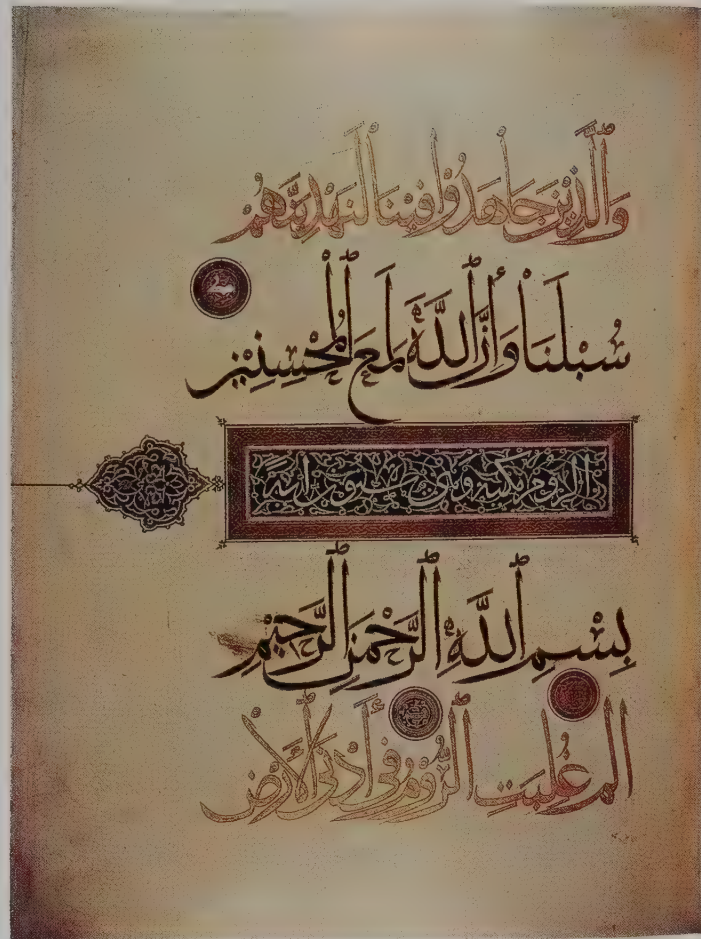 وَالَّذِيْنَ جَاهَدُوْا فِيْنَا لَنَهْدِيَنَّهُمْ
سُبُلَنَا وَإِنَّ اللَّهَ لَمَعَ الْمُحْسِنِيْنَ
الروم مكية وهي ستون آية
بِسْمِ اللَّهِ الرَّحْمٰنِ الرَّحِيْمِ
الم غُلِبَتِ الرُّوْمُ فِي أَدْنَى الْأَرْضِ